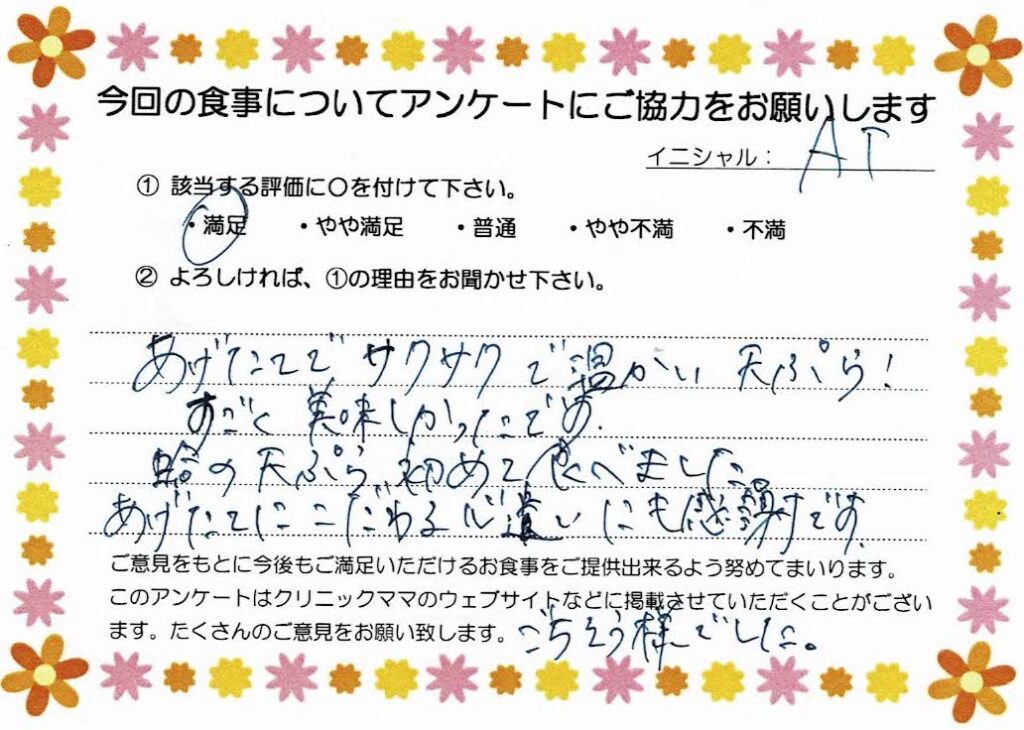 今回の食事についてアンケートにご協力をお願いします
イニシャル： AT
① 該当する評価に〇を付けて下さい。
・満足 ・やや満足 ・普通 ・やや不満 ・不満
② よろしければ、①の理由をお聞かせ下さい。
あげたてでサクサクで温かい天ぷら！
すごく美味しかったです.
蛤の天ぷら初めて食べました。
あげたてにこだわる心遣いにも感謝です.
ご意見をもとに今後もご満足いただけるお食事をご提供出来るよう努めてまいります。
このアンケートはクリニックママのウェブサイトなどに掲載させていただくことがござい
ます。たくさんのご意見をお願い致します。 ごちそう様でした。